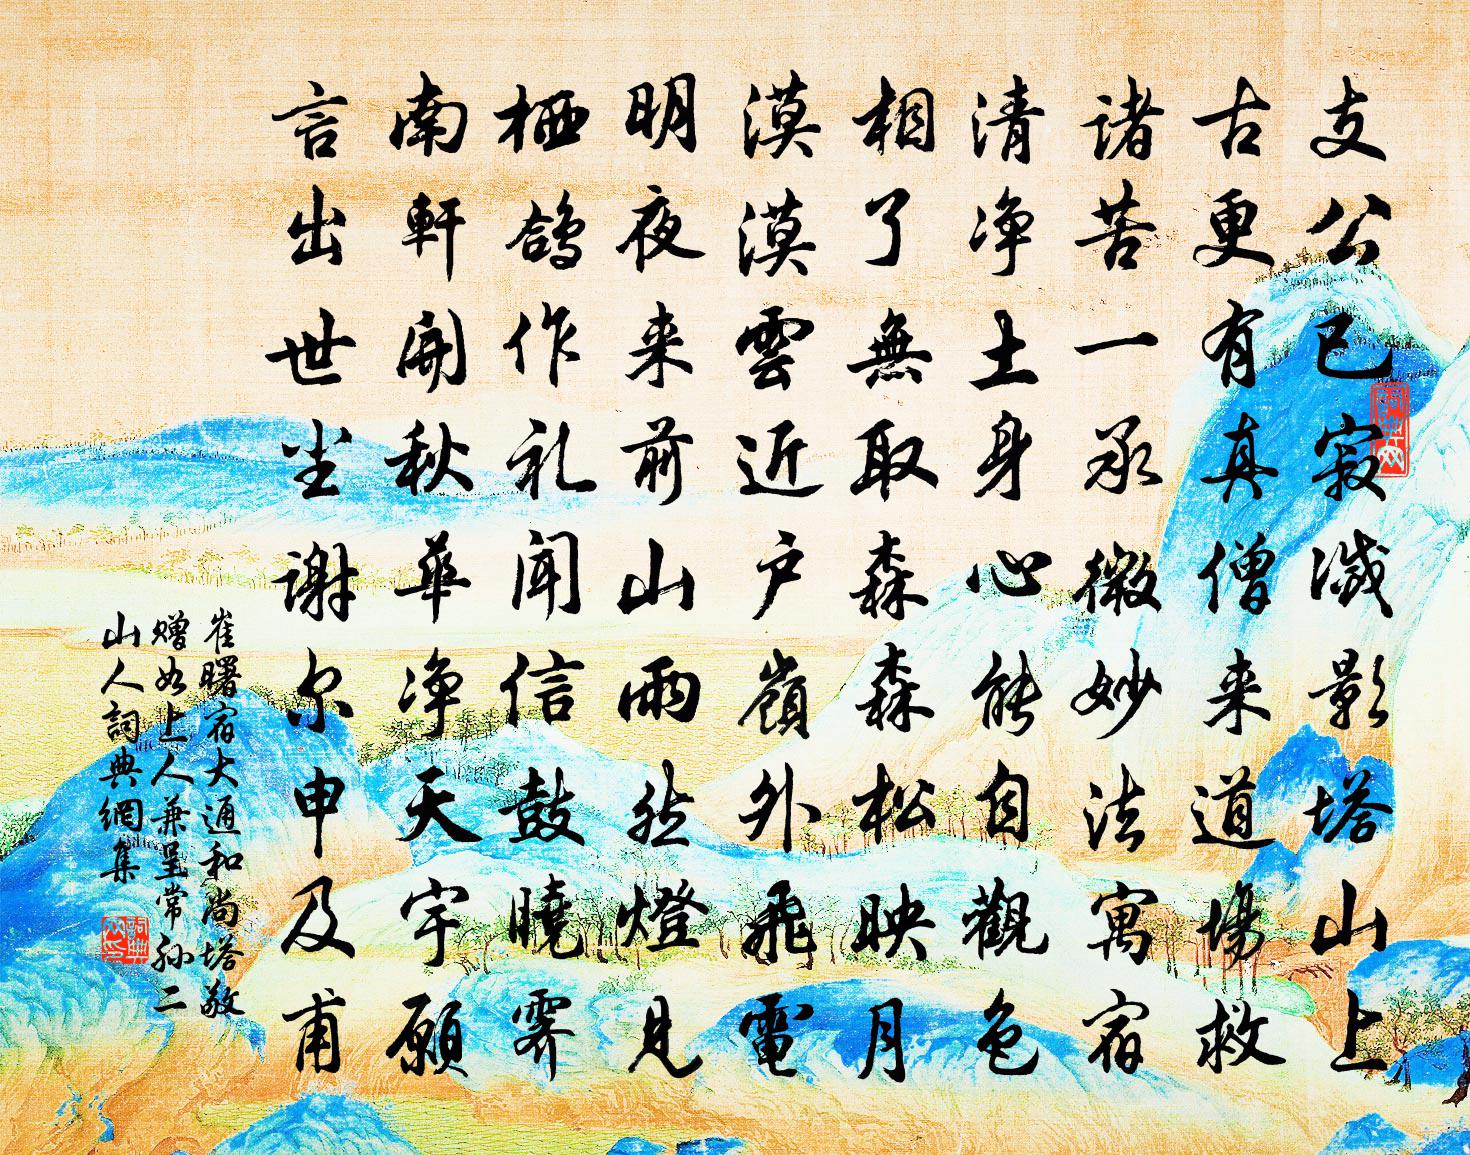 支公已寂滅影塔山上
古更有真僧来道場救
諸苦一承微妙法寓宿
清净土身心能自觀色
相了無取森森松映月
漠漠雲近户嶺外飛電
明夜来前山雨然燈見
栖鴿作礼聞信鼓曉霽
南軒開秋華净天宇願
言出世尘謝尔申及甫
崔曙宿大通和尚塔敬
赠如上人兼呈常孙二
山人詞典網集